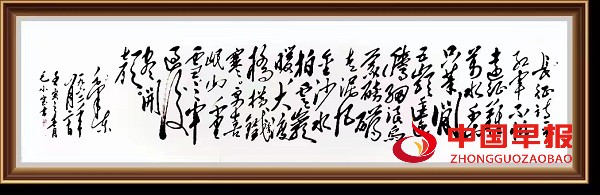 长征诗一首
红军不怕
远征难
万水千山
只等闲
五岭逶迤
腾细浪乌
蒙磅礴
走泥丸
金沙水
拍云崖
暖大渡
桥横铁
索寒更喜
岷山千里
雪三军
过后
尽开
颜
毛泽东
一九六二年
中国早报
ZHONGGUOZAOBAO